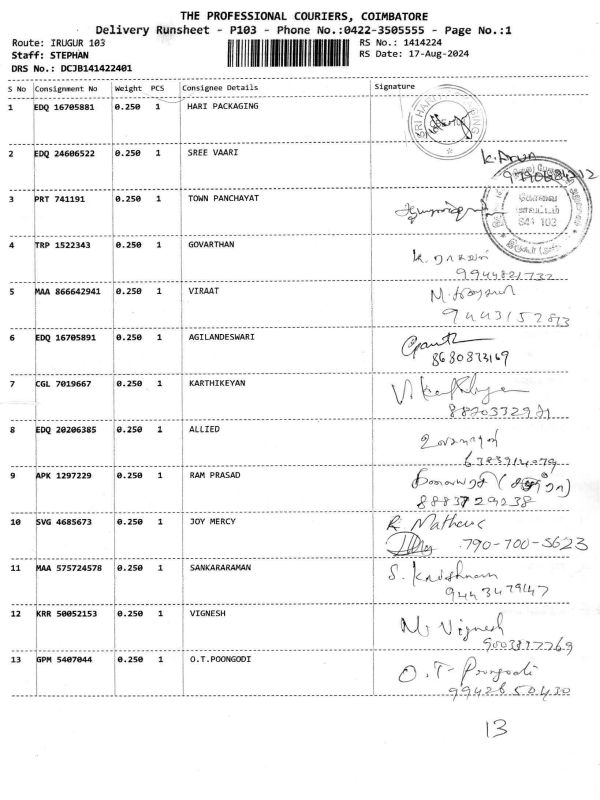 THE PROFESSIONAL COURIERS, COIMBATORE
Delivery Runsheet - P103 - Phone No.:0422-3505555 - Page No.:1
Route: IRUGUR 103
RS No.: 1414224
Staff: STEPHAN
RS Date: 17-Aug-2024
DRS No.: DCJB141422401
S No Consignment No Weight PCS Consignee Details Signature
1 EDQ 16705881 0.250 1 HARI PACKAGING
2 EDQ 24606522 0.250 1 SREE VAARI K. Arun
3 PRT 741191 0.250 1 TOWN PANCHAYAT
641 103
4 TRP 1522343 0.250 1 GOVARTHAN
9944821732
5 MAA 866642941 0.250 1 VIRAAT
6 EDQ 16705891 0.250 1 AGILANDESWARI
8680873169
7 CGL 7019667 0.250 1 KARTHIKEYAN
8 EDQ 20206385 0.250 1 ALLIED
9 APK 1297229 0.250 1 RAM PRASAD
8883729238
10 SVG 4685673 0.250 1 JOY MERCY
790-700-5623
11 MAA 575724578 0.250 1 SANKARARAMAN
9443479147
12 KRR 50052153 0.250 1 VIGNESH M. Vignesh
13 GPM 5407044 0.250 1 O.T.POONGODI O.T. Poongodi
9942650430
13